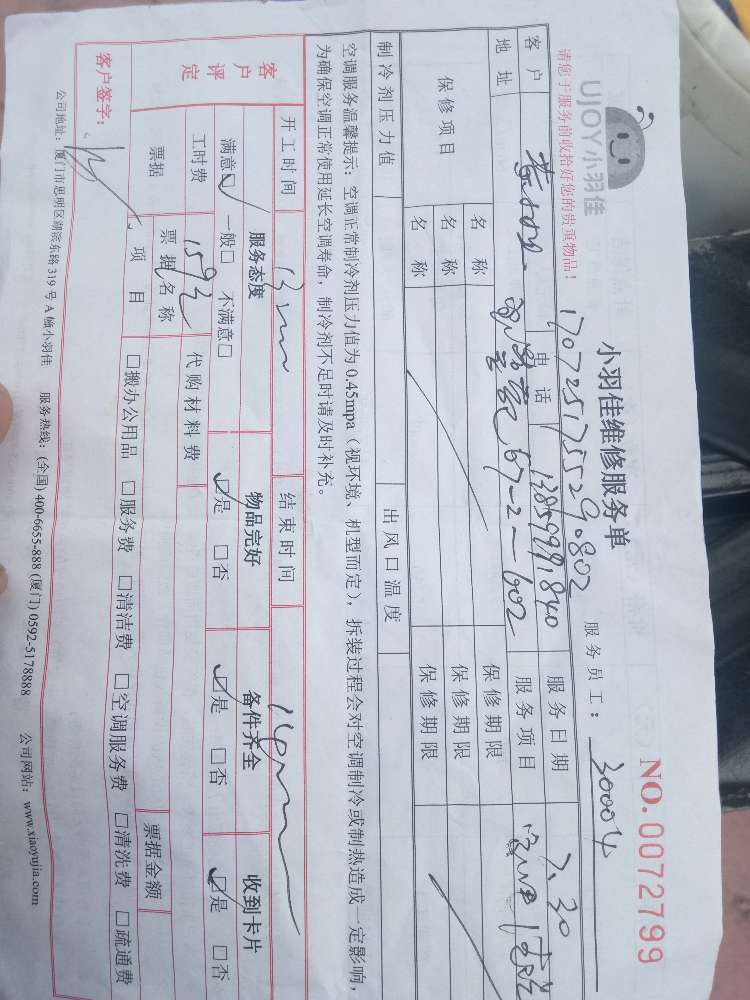 UJOY小羽佳
小羽佳维修服务单
NO.0072799
请您于服务前收拾好您的贵重物品！
1707251755290802
服务员工：
30004
客户
电话
13859991840
服务日期
7.30
地址
67-2-602
服务项目
保修项目
名称
保修期限
名称
保修期限
名称
保修期限
制冷剂压力值
出风口温度
空调服务温馨提示：空调正常制冷剂压力值为0.45mpa（视环境、机型而定），拆装过程会对空调制冷或制热造成一定影响，
为确保空调正常使用延长空调寿命，制冷剂不足时请及时补充。
开工时间
结束时间
客户评定
服务态度
物品完好
备件齐全
收到卡片
满意☑ 一般□ 不满意□
☑是 □否
☑是 □否
☑是 □否
工时费
159元
代购材料费
票据
票据名称
票据金额
项目
□搬办公用品 □服务费 □清洁费 □空调服务费 □清洗费 □疏通费
客户签字：
公司地址：厦门市思明区湖滨东路319号A幢小羽佳 服务热线：(全国) 400-6655-888 (厦门) 0592-5178888 公司网站：www.xiaoyujia.com